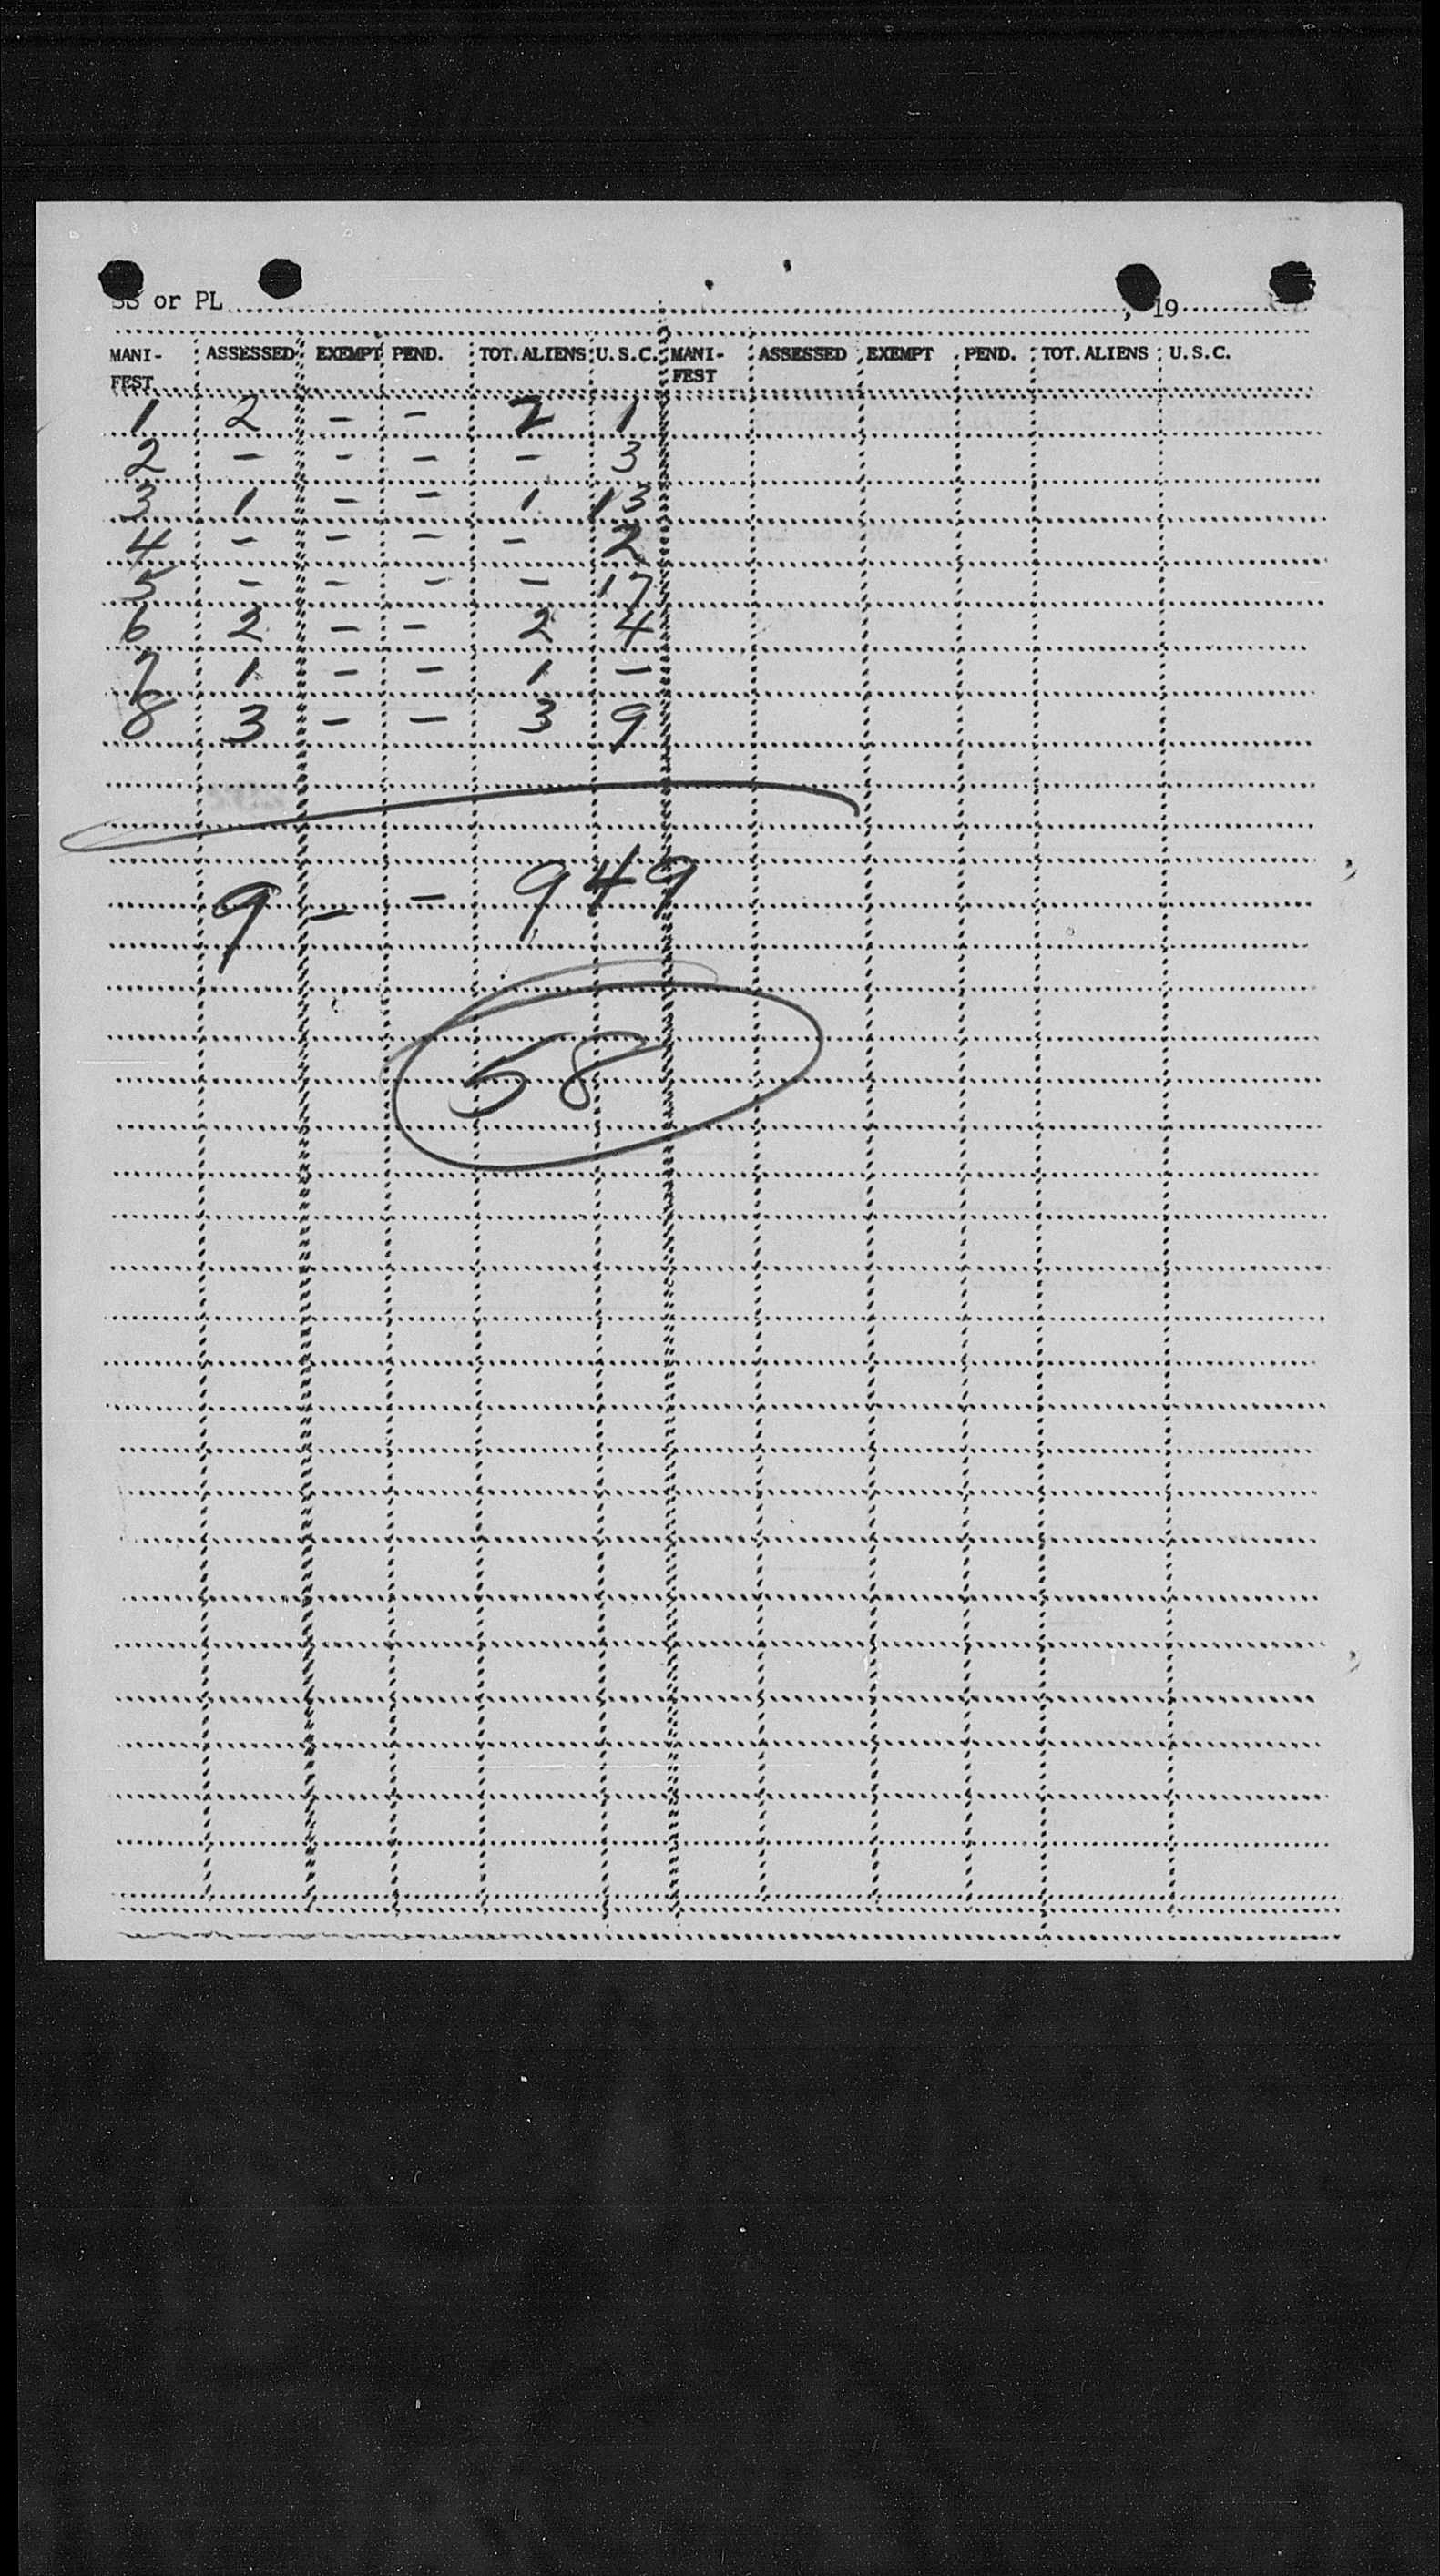 SS or PL , 19
MANI- ASSESSED EXEMPT PEND. TOT. ALIENS U.S.C. MANI- ASSESSED EXEMPT PEND. TOT. ALIENS U.S.C.
FEST FEST
1 2 - - 2 1
2 - - - - 3
3 1 - - 1 13
4 - - - - 2
5 - - - - 17
6 2 - - 2 4
7 1 - - 1 -
8 3 - - 3 9
9 - - 9 49
58